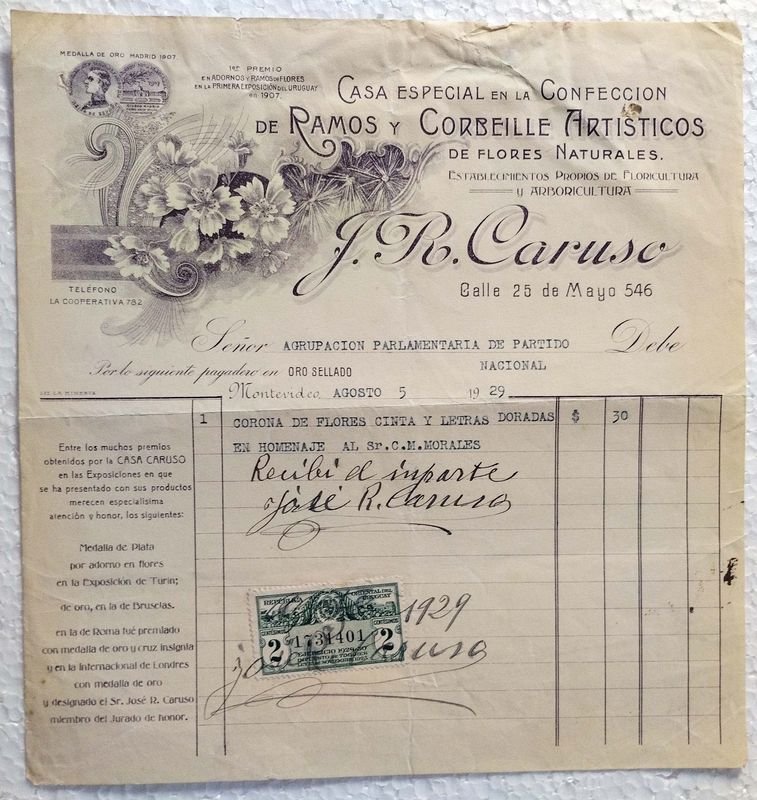 MEDALLA DE ORO MADRID 1907
1er PREMIO
EN ADORNOS Y RAMOS DE FLORES
EN LA PRIMERA EXPOSICIÓN DEL URUGUAY
en 1907.
CASA ESPECIAL EN LA CONFECCION
DE RAMOS Y CORBEILLE ARTISTICOS
DE FLORES NATURALES.
ESTABLECIMIENTOS PROPIOS DE FLORICULTURA
Y ARBORICULTURA
J. R. Caruso
Calle 25 de Mayo 546
TELÉFONO
LA COOPERATIVA 782
Señor AGRUPACION PARLAMENTARIA DE PARTIDO Debe
NACIONAL
Por lo siguiente pagadero en ORO SELLADO
Montevideo, AGOSTO 5 1929
LIT. LA MINERVA
1 CORONA DE FLORES CINTA Y LETRAS DORADAS $ 30
EN HOMENAJE AL Sr.C.M.MORALES
Recibi el inparte
José R. Caruso
Entre los muchos premios
obtenidos por la CASA CARUSO
en las Exposiciones en que
se ha presentado con sus productos
merecen especialísima
atención y honor, los siguientes:
Medalla de Plata
por adorno en flores
en la Exposición de Turin;
de oro, en la de Bruselas.
en la de Roma fué premiado
con medalla de oro y cruz insignia
y en la Internacional de Londres
con medalla de oro
y designado el Sr. José R. Caruso
miembro del Jurado de honor.
REPUBLICA ORIENTAL DEL URUGUAY
CENTÉSIMOS CENTÉSIMOS
2 1734401 2
EJERCICIO 1929-30
IMPUESTO DE TIMBRES
1929
José R. Caruso